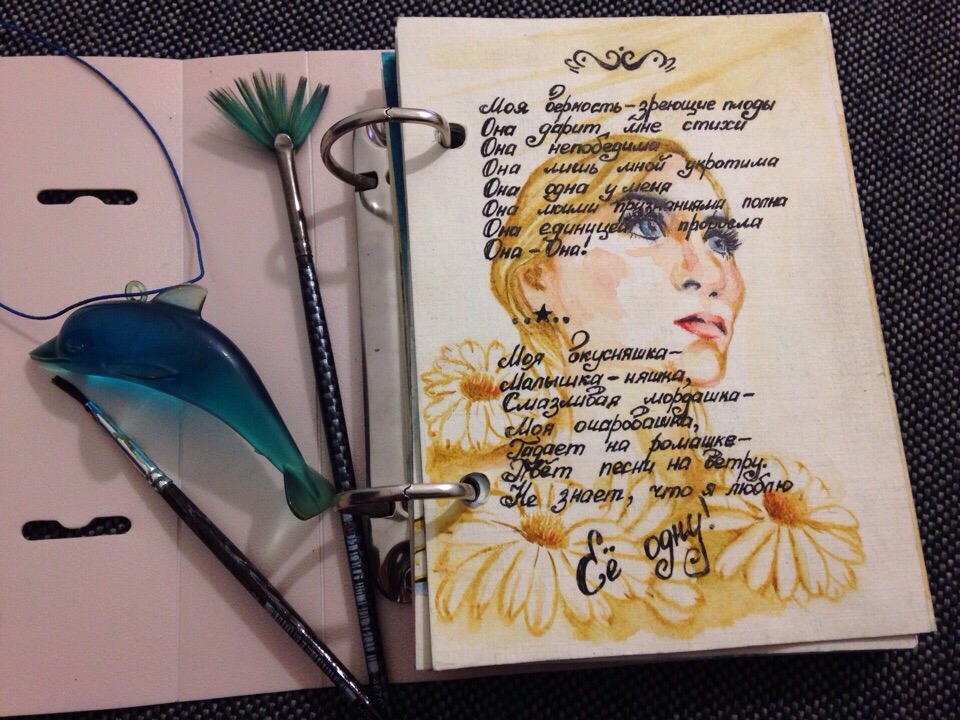 Моя верность-зреющие плоды
Она дарит мне стихи
Она непобедима
Она лишь мной укротима
Она одна у меня
Она моими признаниями полна
Она единицей проросла
Она-Она!
Моя вкусняшка-
Малышка-няшка,
Смазливая мордашка-
Моя очаровашка,
Гадает на ромашке-
Поёт песни на ветру.
Не знает, что я люблю
Её одну!